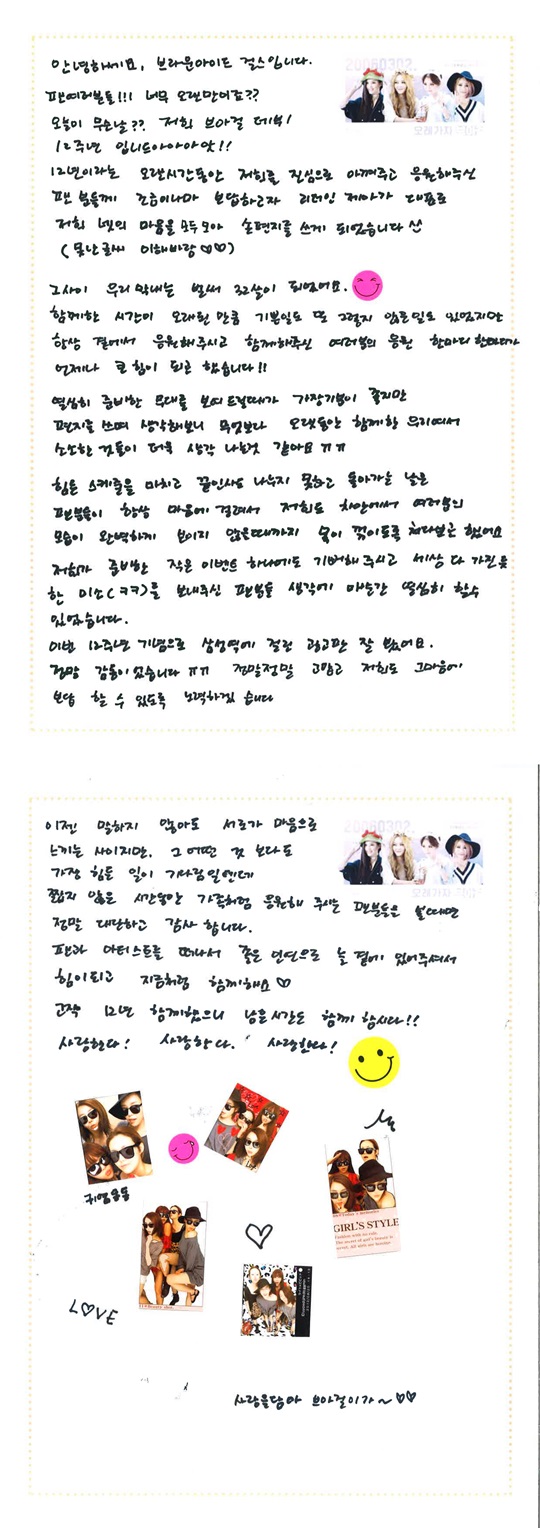 안녕하세요, 브라운아이드 걸스입니다.
20060302.
오래가자
팬여러분들!!! 너무 오랜만이죠??
오늘이 무슨날?? 저희 브아걸 데뷔!
12주년 입니드아아아앗!!
12년이라는 오랜시간동안 저희를 진심으로 아껴주고 응원해주신
팬 분들께 조금이나마 보답하고자 리더인 제아가 대표로
저희 넷의 마음을 모두모아 손편지를 쓰게 되었습니다 ^^
(못난글씨 이해바랑 ♡♡)
그사이 우리 막내는 벌써 32살이 되었어요.
함께한 시간이 오래된 만큼 기쁜일도 또 그렇지 않은일도 있었지만
항상 곁에서 응원해주시고 함께해주신 여러분의 응원 한마디 한마디가
언제나 큰 힘이 되곤 했습니다!!
열심히 준비한 무대를 보여드릴때가 가장기분이 좋지만
편지를 쓰며 생각해보니 무엇보다 오랫동안 함께한 우리여서
소소한 것들이 더욱 생각 나는것 같아요 ㅠㅠ
힘든 스케줄을 마치고 끝인사도 나누지 못하고 돌아가는 날은
팬분들이 항상 마음에 걸려서 저희도 차안에서 여러분의
모습이 완벽하게 보이지 않을때까지 목이 꺾이도록 쳐다보곤 했어요
저희가 준비한 작은 이벤트 하나에도 기뻐해 주시고 세상 다 가진듯
한 미소(ㅋㅋ)를 보내주신 팬분들 생각에 매순간 열심히 할수
있었습니다.
이번 12주년 기념으로 삼성역에 걸린 광고판 잘 봤어요.
정말 감동이었습니다 ㅠㅠ 정말정말 고맙고 저희도 그마음에
보답 할 수 있도록 노력하겠습니다
이젠 말하지 않아도 서로가 마음으로
20060302.
오래가자
느끼는 사이지만, 그 어떤 것 보다도
가장 힘든 일이 기다림일텐데
짧지 않은 시간동안 가족처럼 응원해 주시는 팬분들을 볼때면
정말 대단하고 감사 합니다.
팬과 아티스트를 떠나서 좋은 인연으로 늘 곁에 있어주셔서
힘이되고 지금처럼 함께해요 ♡
고작 12년 함께했으니 남은시간도 함께 합시다!!
사랑한다! 사랑한다. 사랑한다!
귀염둥둥
GIRL'S STYLE
♡
L♡VE
사랑을담아 브아걸이가~♡♡